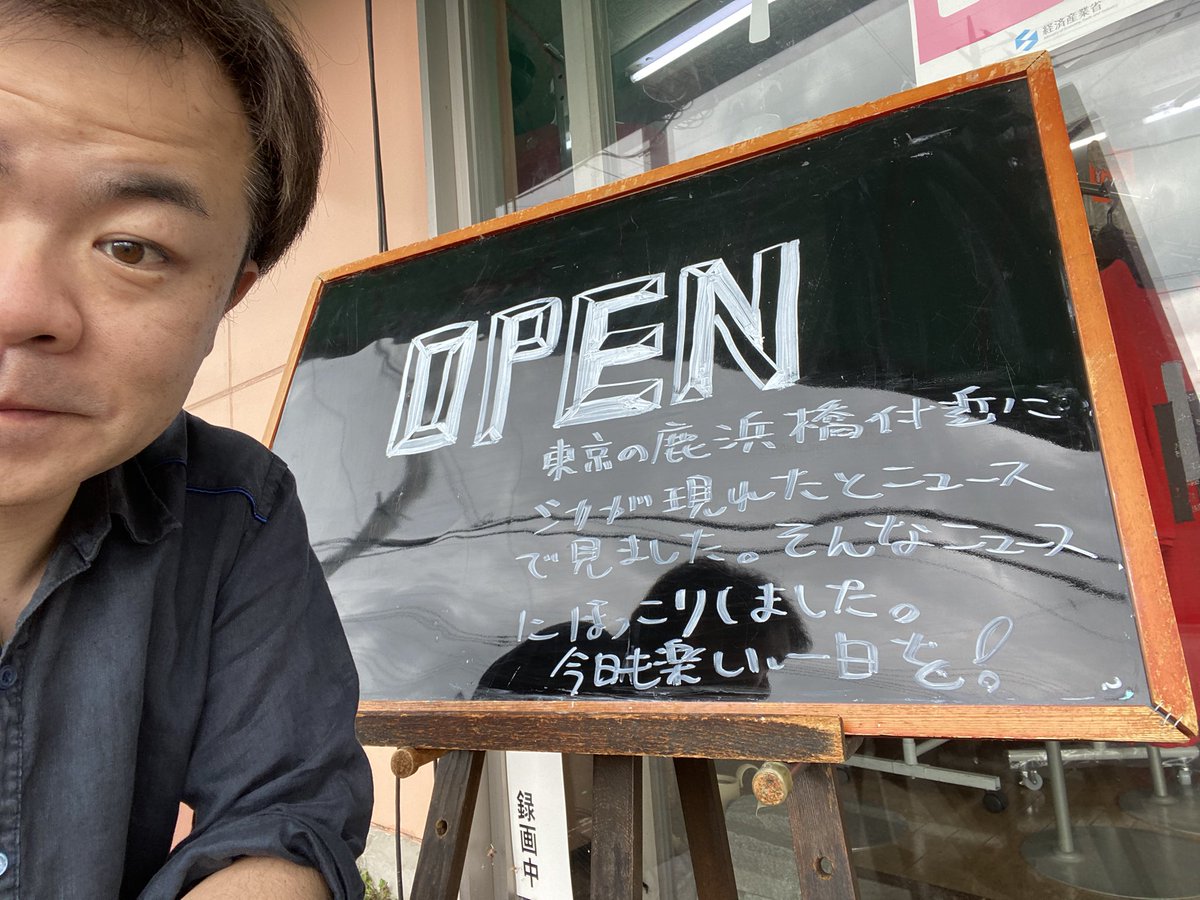 経済産業省
OPEN
東京の鹿浜橋付近に
シカが現れたとニュース
で見ました。そんなニュース
にほっこりしました。
今日も楽しい一日を!
録画中